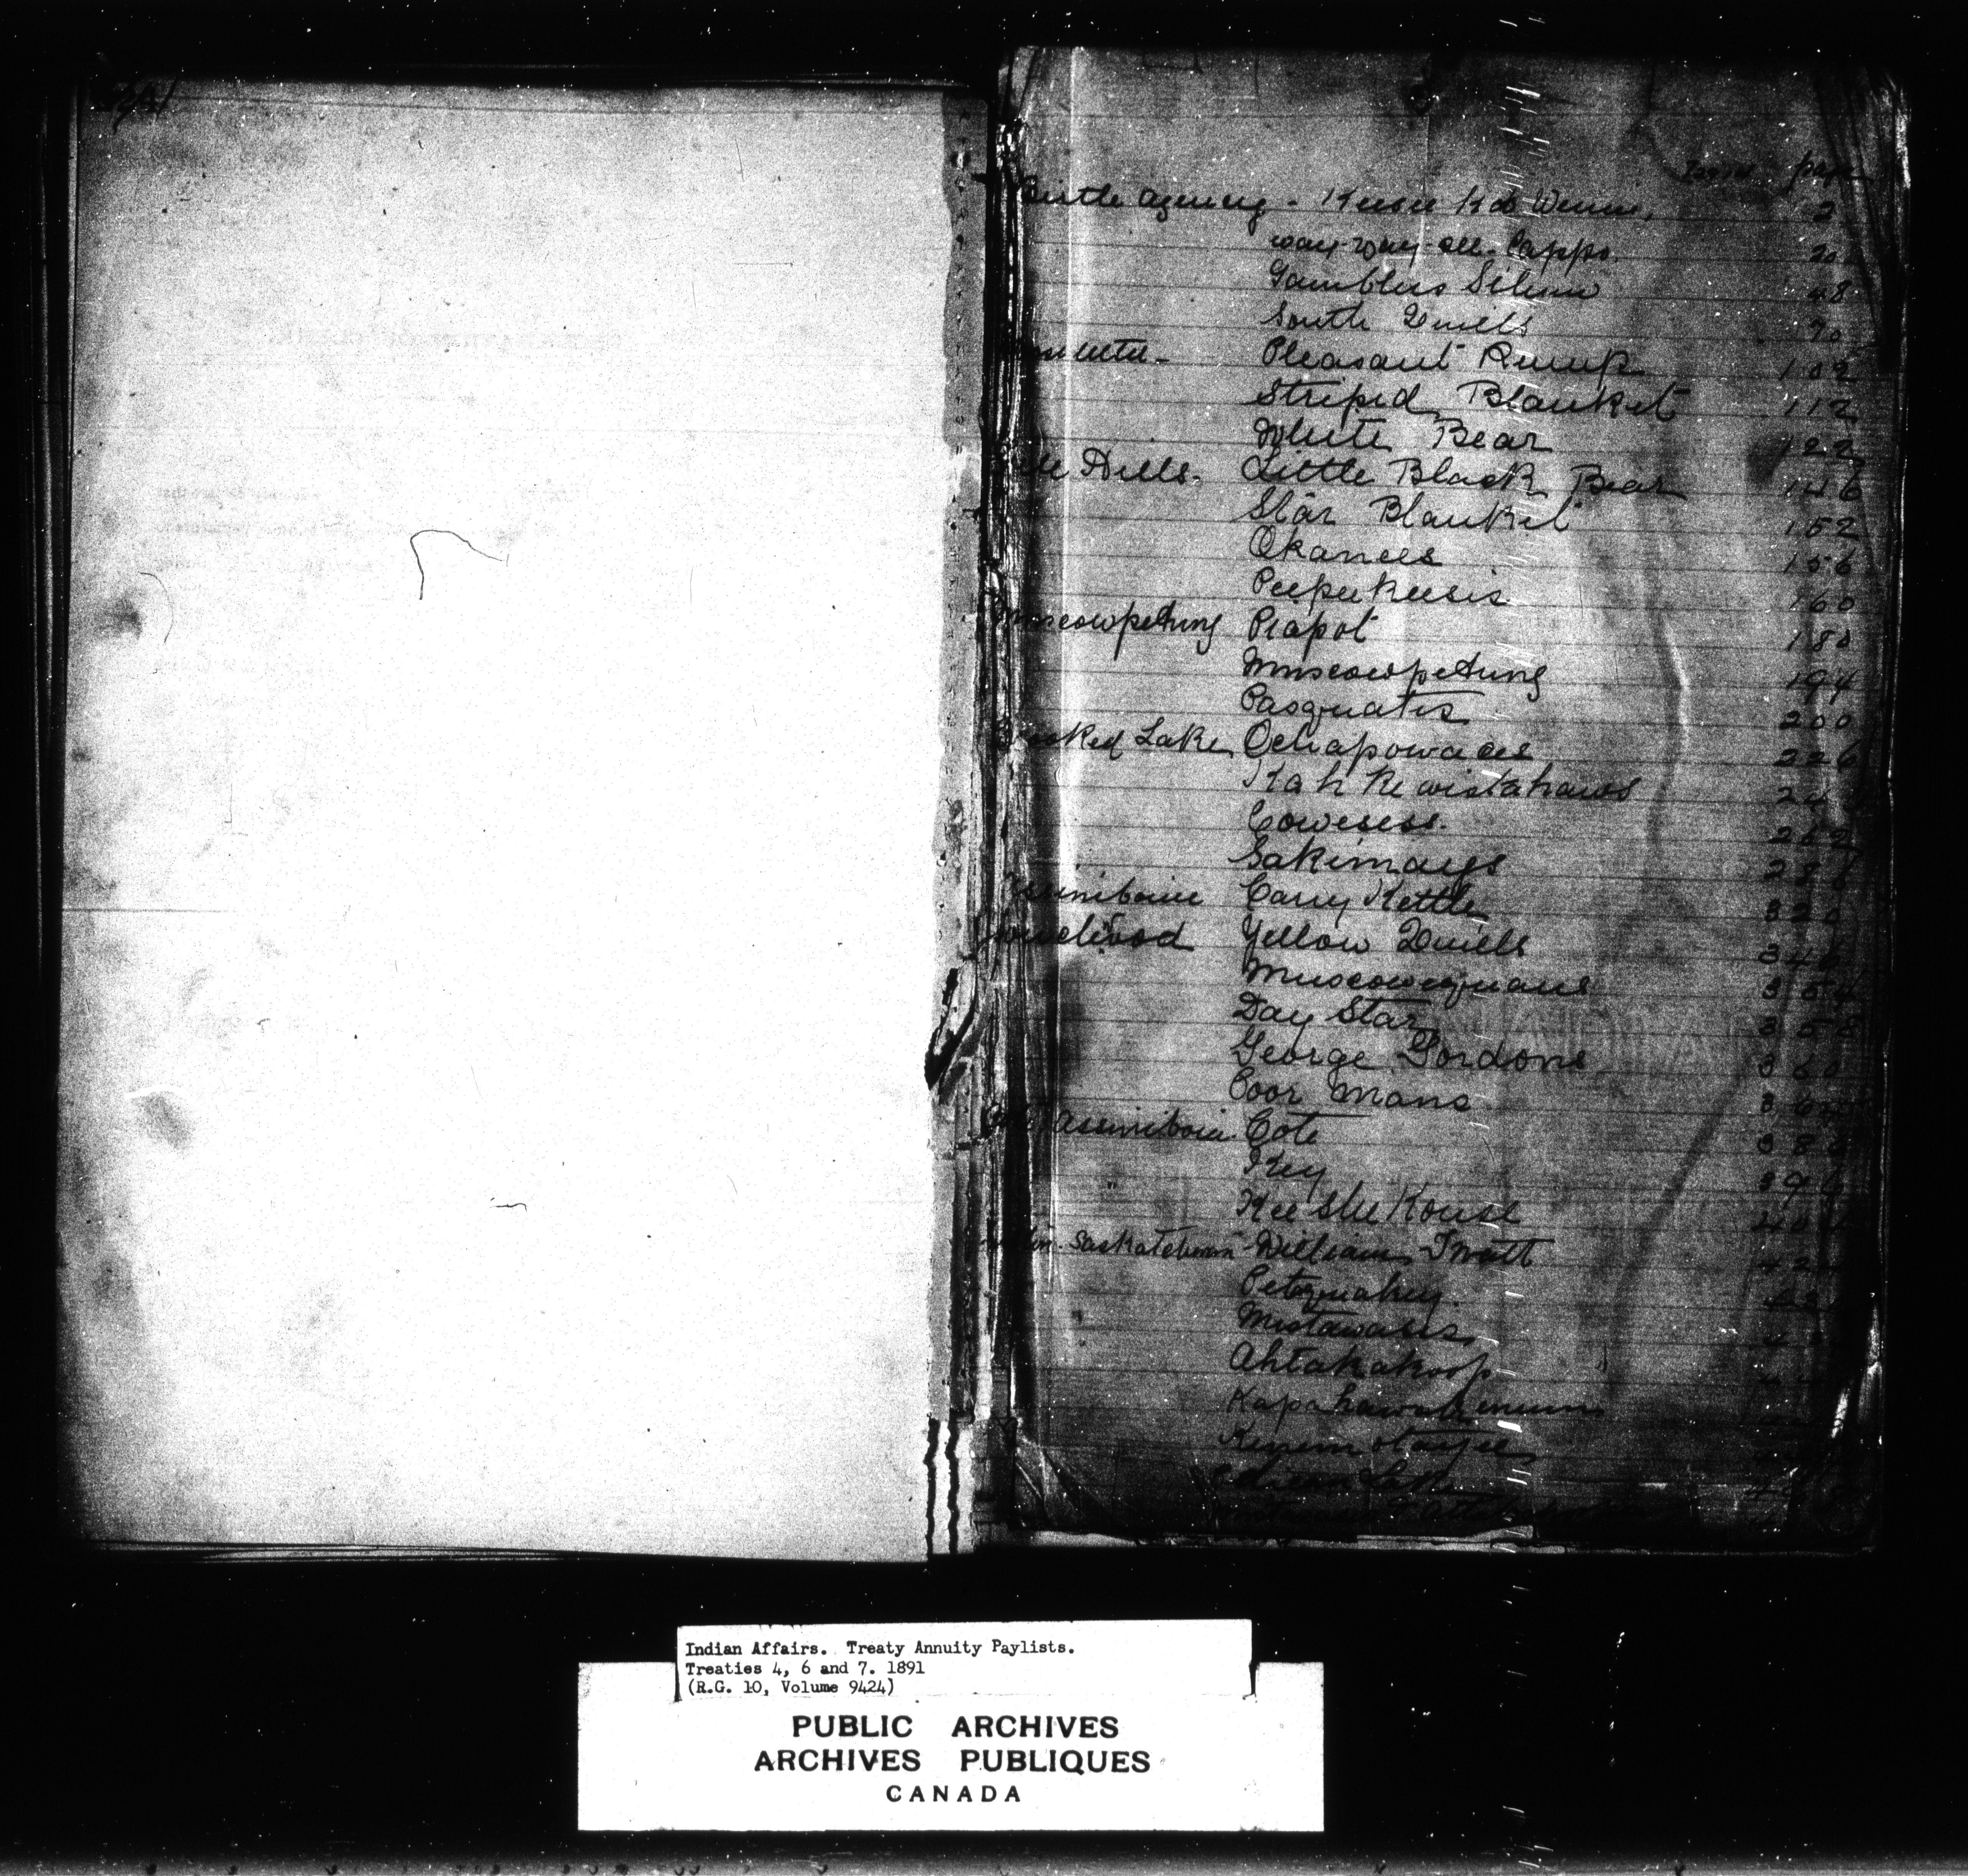 page
Birtle Agency - Keesee Koo Wenin, 2
way-way-see-Cappo. 20
Gamblers Silum 48
South Quills 70
Pleasant Rump 102
Striped Blanket 112
White Bear 122
Hills. Little Black Bear 146
Star Blanket 152
Okanees 156
Peepeekeesis 160
Muscowpetung Piapot 180
Muscowpetung 194
Pasquatis 200
Crooked Lake Ochapowaces 226
Kah Ke wistahaws
Cowesess. 262
Sakimays
Assiniboine Carry Kettle 320
Yellow Quills 346
Muscowequans 354
Day Star 358
George Gordons 360
Poor Mans
Assiniboia Cote
Key
Kee She Kouse
Saskatchewan - William Twatt
Petequakey.
Mistawasis
Ahtakakoop
Kapahawekenum
Kenemotayoo
Indian Affairs. Treaty Annuity Paylists.
Treaties 4, 6 and 7. 1891
(R.G. 10, Volume 9424)
PUBLIC ARCHIVES
ARCHIVES PUBLIQUES
CANADA